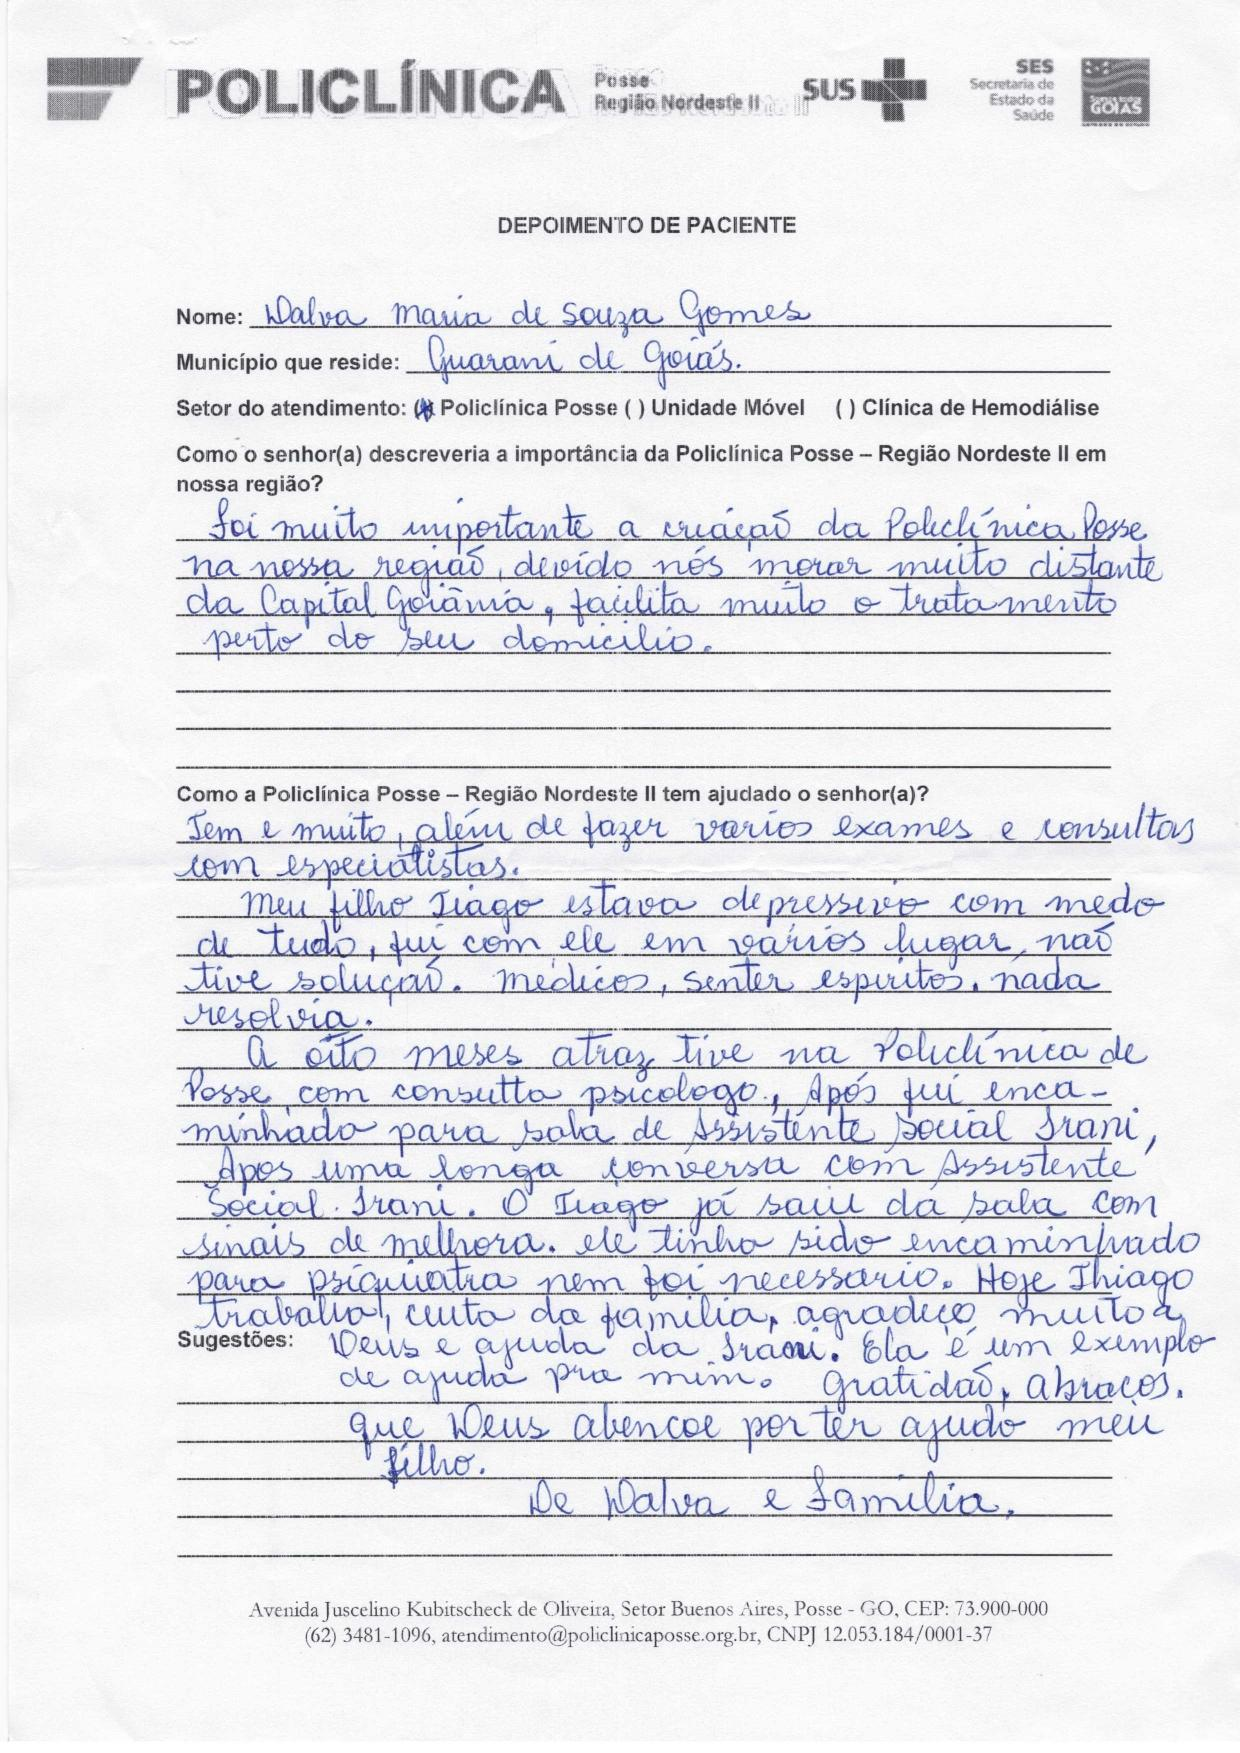 POLICLÍNICA
Posse
Região Nordeste II
SUS
SES
Secretaria de
Estado da
Saúde
GOIÁS
DEPOIMENTO DE PACIENTE
Nome: Dalva Maria de Souza Gomes
Município que reside: Guarani de Goiás.
Setor do atendimento: (x) Policlínica Posse ( ) Unidade Móvel ( ) Clínica de Hemodiálise
Como o senhor(a) descreveria a importância da Policlínica Posse – Região Nordeste II em
nossa região?
Foi muito importante a criação da Policlínica Posse
na nossa região, devido nós morar muito distante
da Capital Goiânia, facilita muito o tratamento
perto do seu domicilio.
Como a Policlínica Posse – Região Nordeste II tem ajudado o senhor(a)?
Tem e muito, além de fazer varios exames e consultas
com especialistas.
Meu filho Tiago estava depressivo com medo
de tudo, fui com ele em vários lugar, não
tive solução. Médicos, senter espiritos, nada
resolvia.
A oito meses atraz tive na Policlínica de
Posse com consulta psicologo, Após fui enca-
minhado para sala de Assistente Social Irani,
Apos uma longa conversa com Assistente
Social Irani. O Tiago já saiu da sala com
sinais de melhora. ele tinha sido encaminhado
para psiquiatra nem foi necessario. Hoje Thiago
trabalha, cuita da familia, agradeço muito a
Sugestões: Deus e ajuda da Irani. Ela é um exemplo
de ajuda pra mim. Gratidão, Abraços.
que Deus abençoe por ter ajudo meu
filho.
De Dalva e Familia.
Avenida Juscelino Kubitscheck de Oliveira, Setor Buenos Aires, Posse - GO, CEP: 73.900-000
(62) 3481-1096, atendimento@policlinicaposse.org.br, CNPJ 12.053.184/0001-37